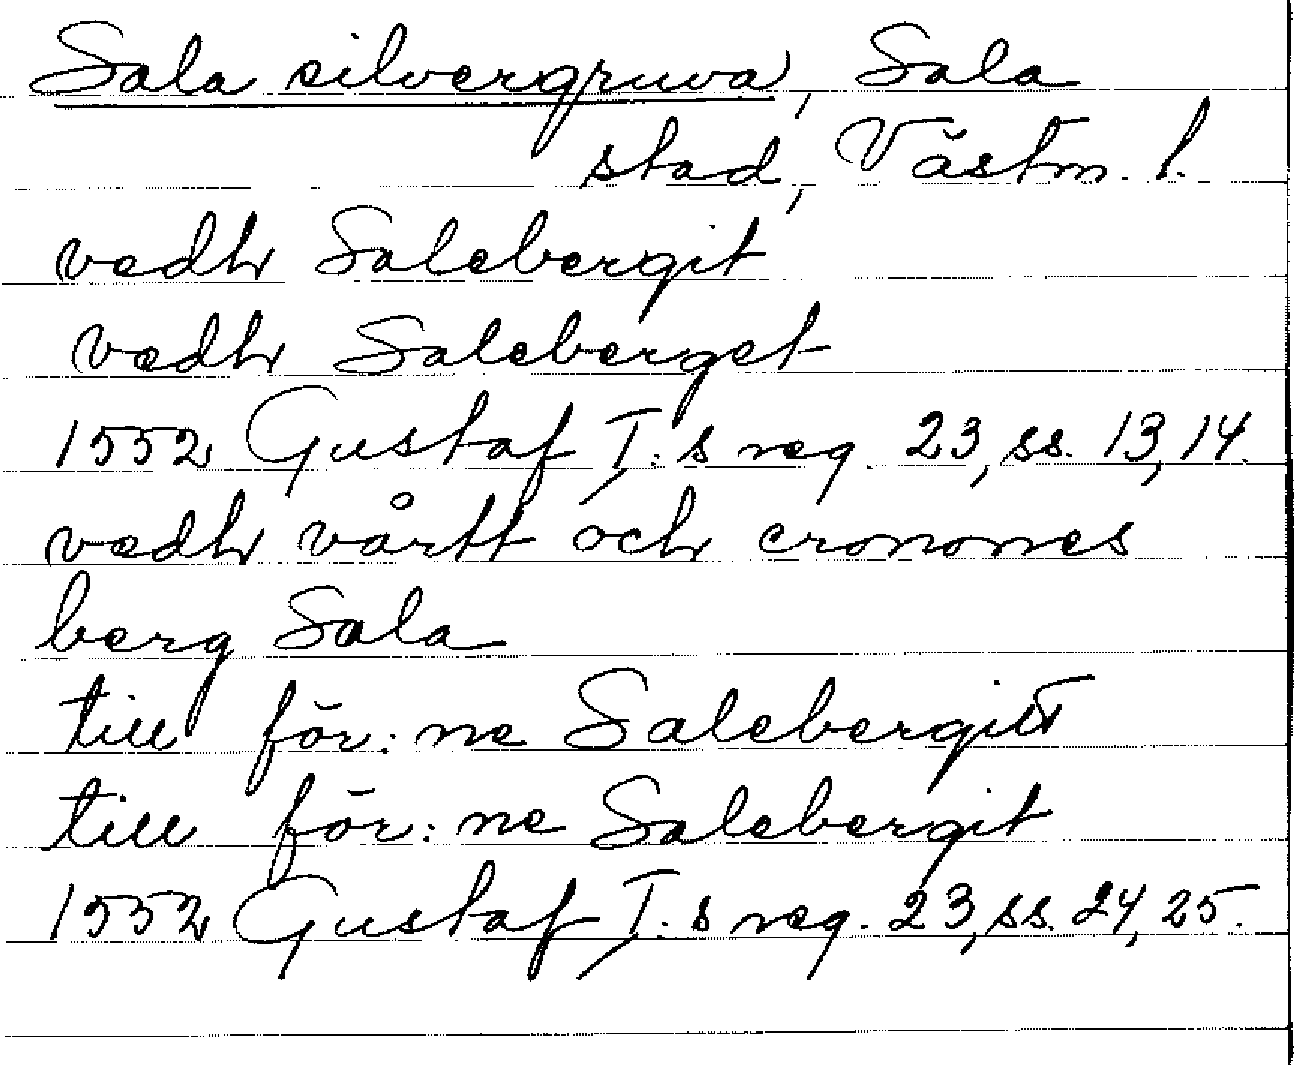 Sala silvergruva, Sala
stad, Västm. l.
vedh Salebergit
vedh Saleberget
1552 Gustaf I:s reg. 23, ss. 13, 14.
vedh vårtt och cronones
berg Sala
till för:ne Salebergitt
till för:ne Salebergit
1552 Gustaf I:s reg. 23, ss. 24, 25.